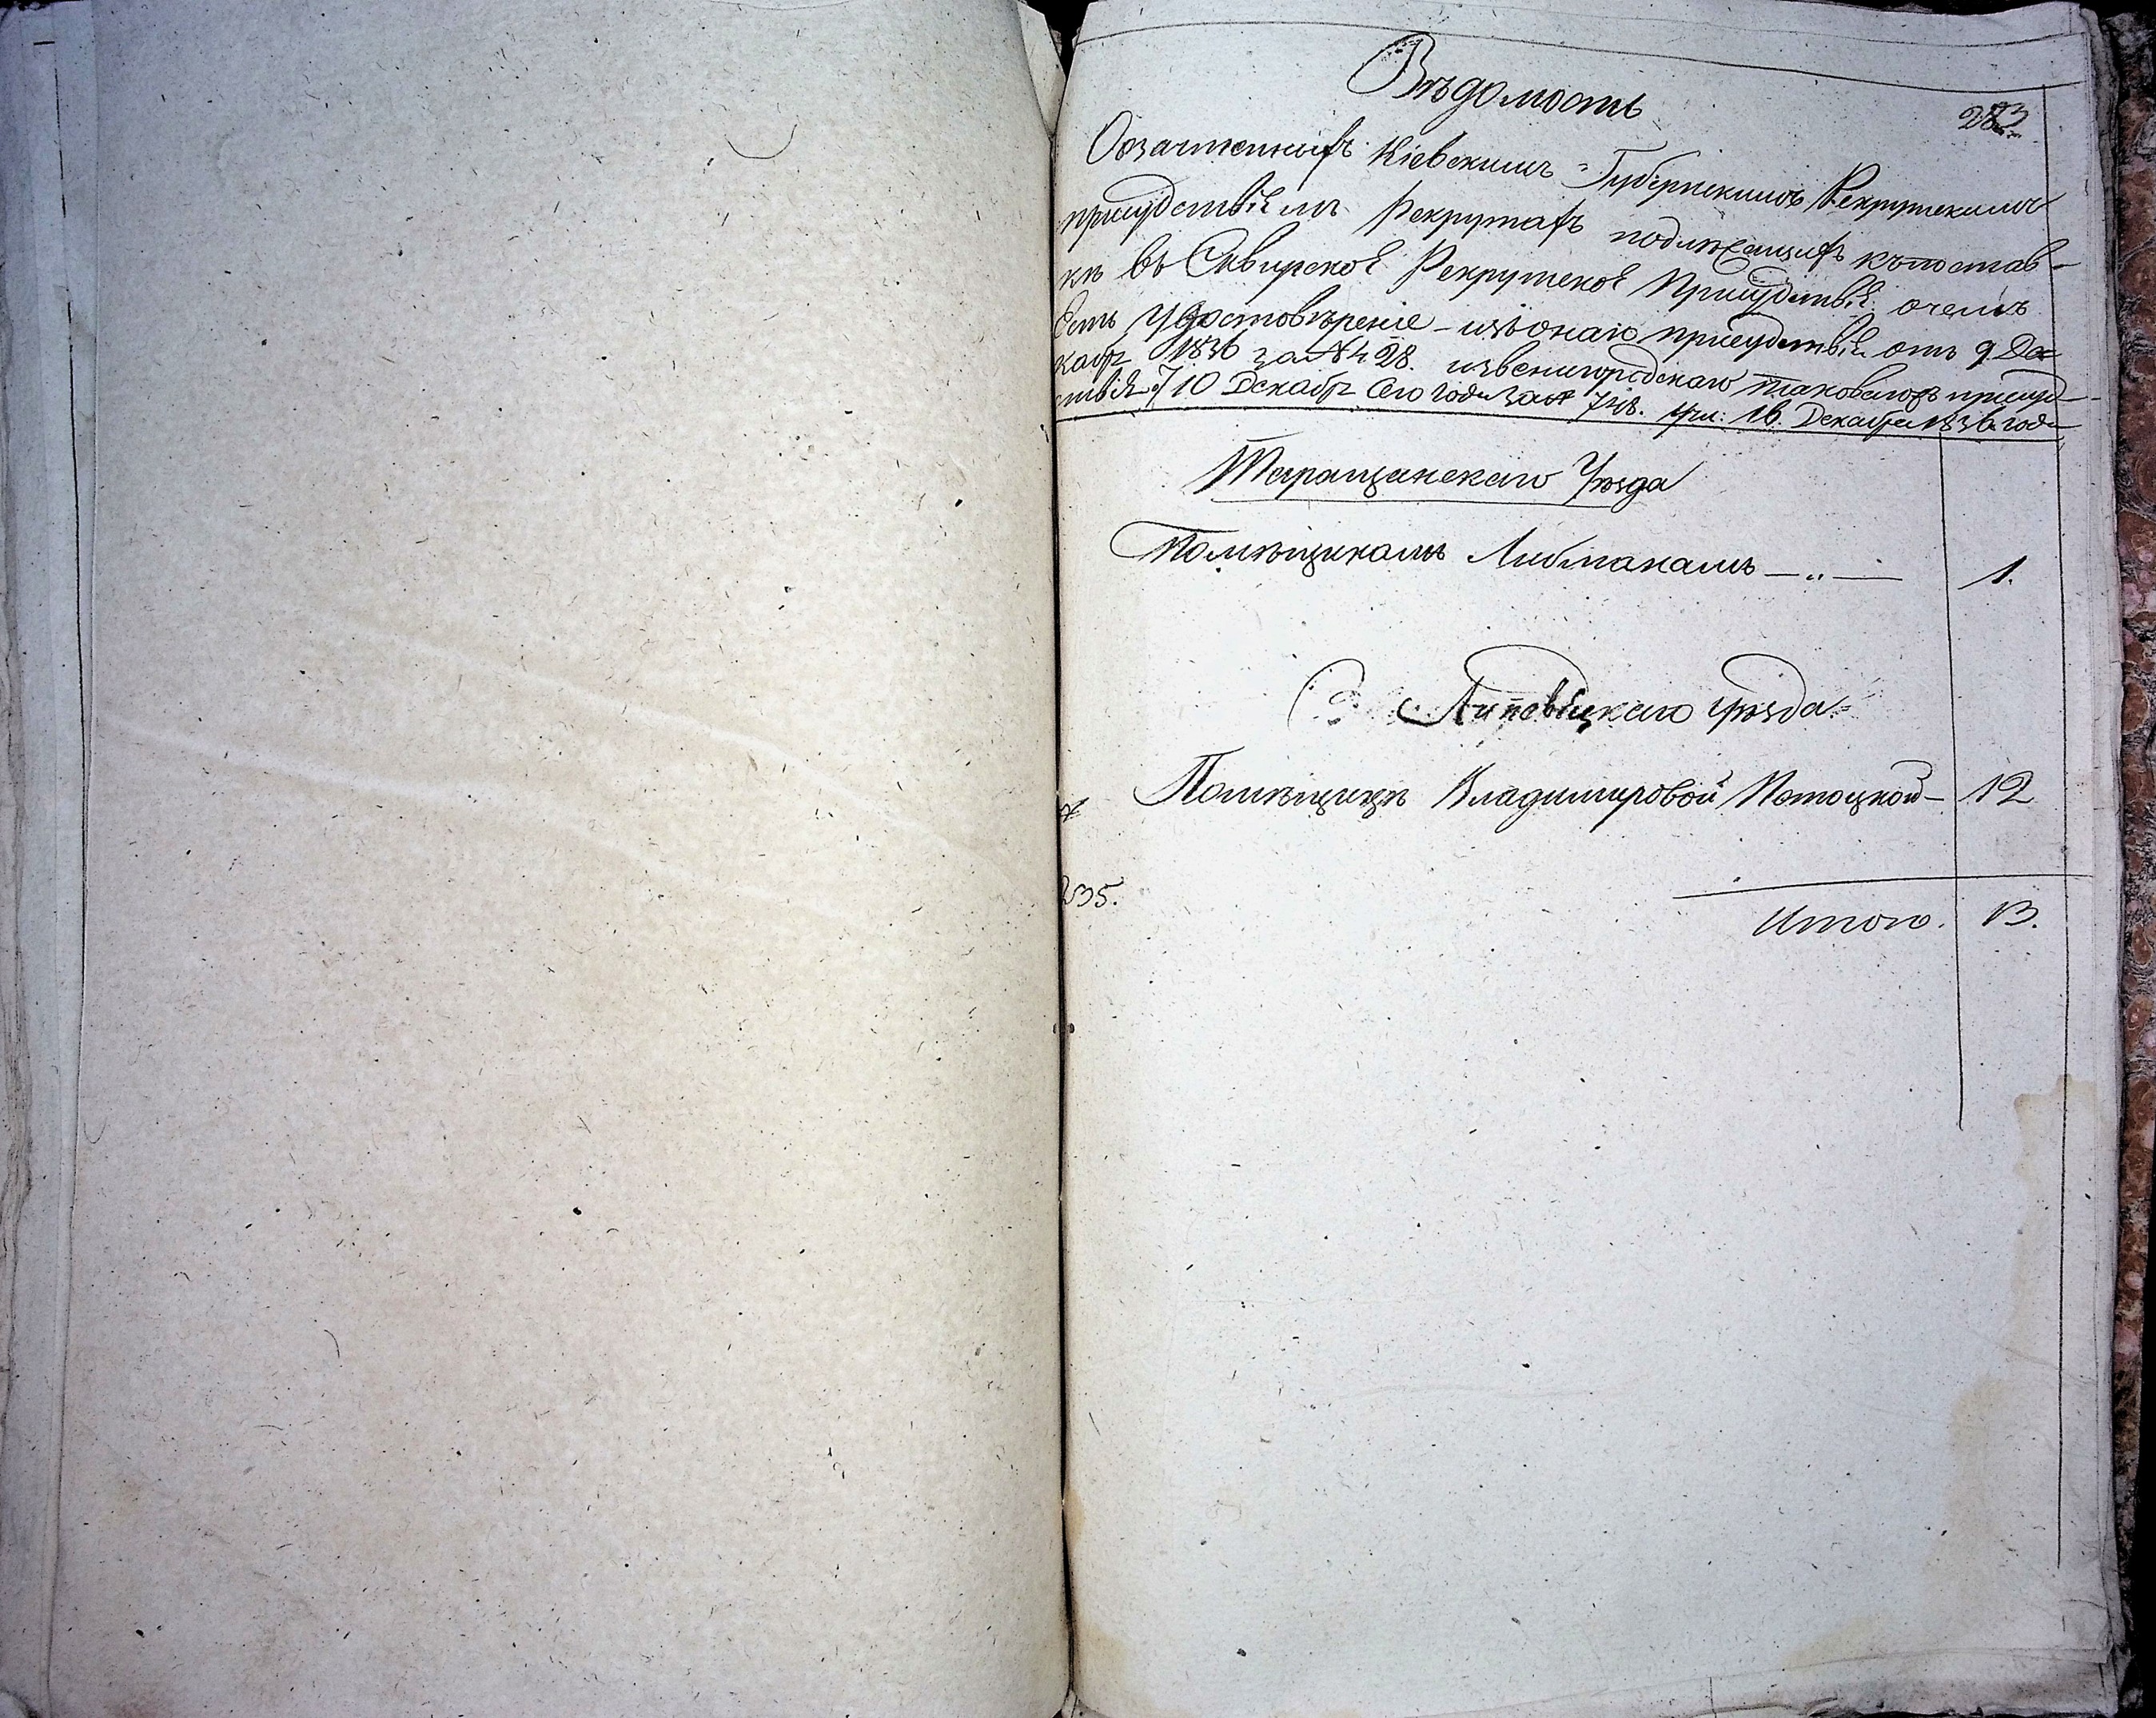 Вѣдомость
283
О зачтенныхъ Кіевскимъ Губернскимъ Рекрутскимъ
присудствіемъ Рекрутахъ подлежащихъ къ постав-
кѣ въ Сквирское Рекрутское Присудствіе, о чемъ
есть удостовѣреніе – изъ онаго присудствія отъ 9 Де-
кабр 1836 за № 428. Извенигородскаго таковагожъ присуд-
ствія 10 Декабр сего года за № 748. 16. Декабря 1836 года
Таращанскаго Уѣзда
Помѣщикамъ Либманамъ – „ – 1.
Липовецкаго уѣзда
Помѣщицѣ Владимировой Потоцкой – 12
235.
Итого. 13.